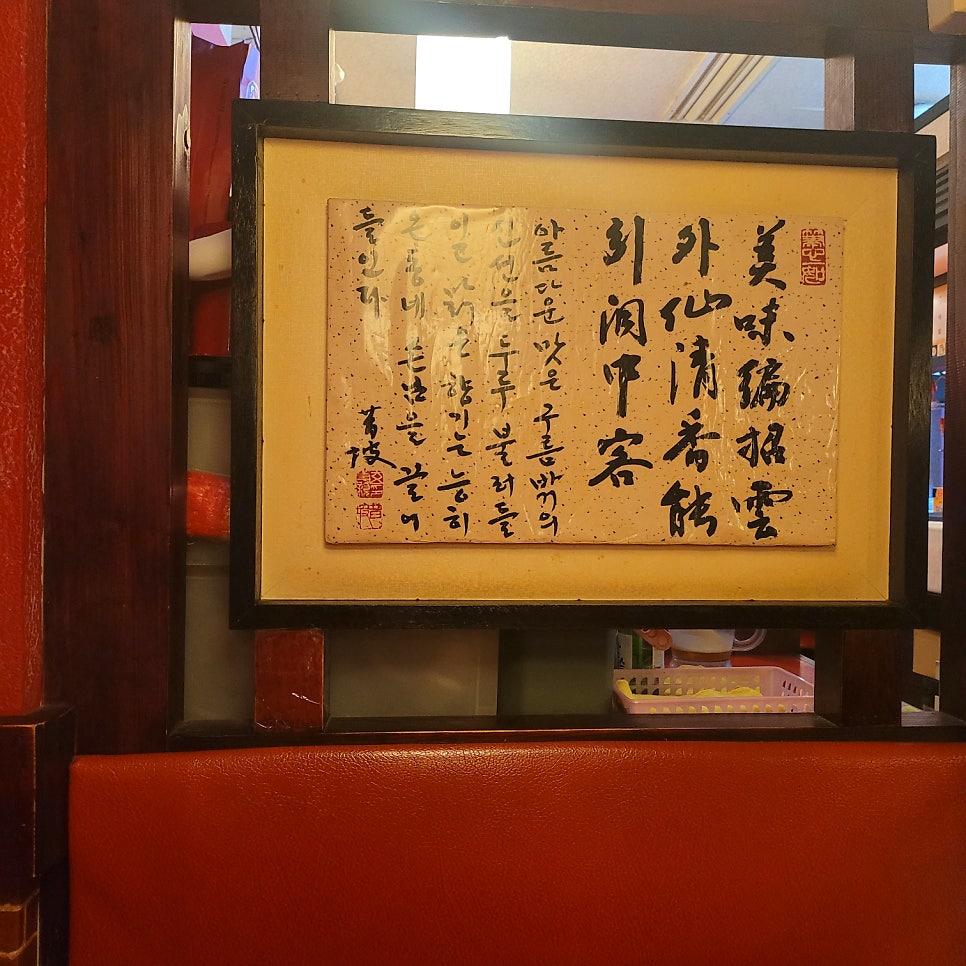 美味編招雲
外仙清香能
引洞中客
아름다운 맛은 구름 밖의
신선을 두루 불러들
맑은 향기는 능히
온 동네 손님을 끌어
들인다
菁坡